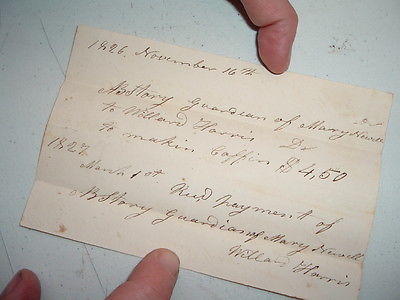 1826. November 16th
Dr
AB Story Guardian of Mary Newell
to Willard Harris Dr
to makin Coffin $ 4,50
1827
March 1st Recd payment of
AB Story Guardian of Mary Newell
Willard Harris